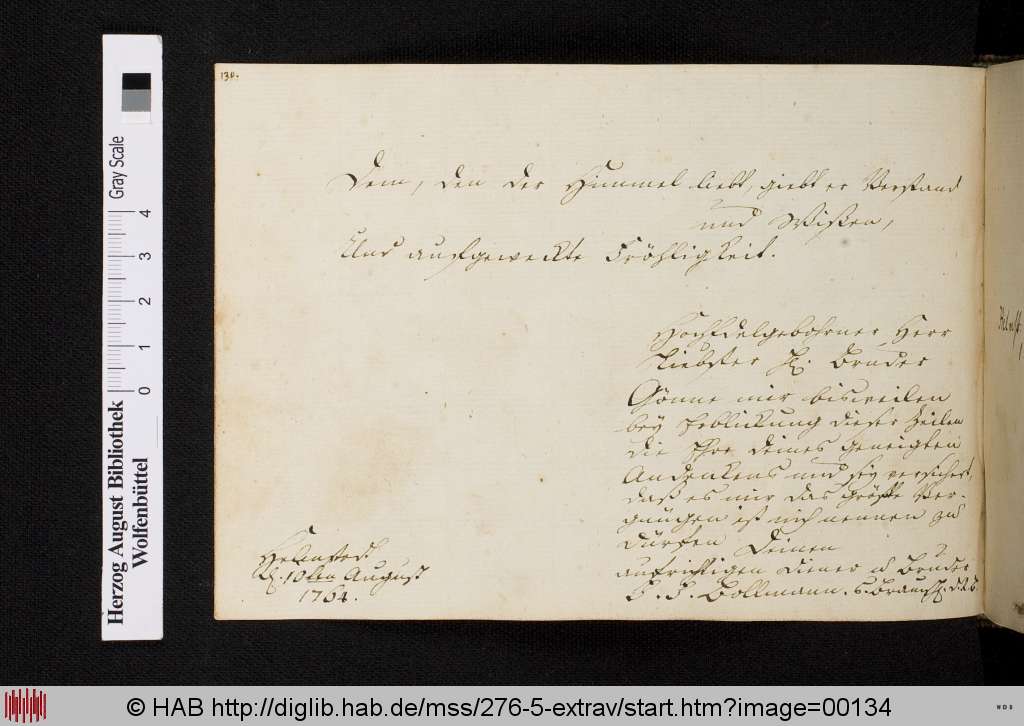 130.
Dem, den der Himmel liebt, giebt er Verstand
und Wißen,
Und aufgeweckte Fröhligkeit.
HochEdelgebohrner Herr
Liebster H. Bruder
Gönne mir bisweilen
bey Erblickung dieser Zeilen
die Ehre deines geneigten
Andenkens und sey versichert,
daß es mir das größte Ver-
gnügen ist mich nennen zu
dürfen Deinen
aufrichtigen Diener u Bruder
Bollmann.
Helmstedt
d. 10ten August
1764.
Herzog August Bibliothek
Wolfenbüttel
Gray Scale
0 1 2 3 4
© HAB http://diglib.hab.de/mss/276-5-extrav/start.htm?image=00134